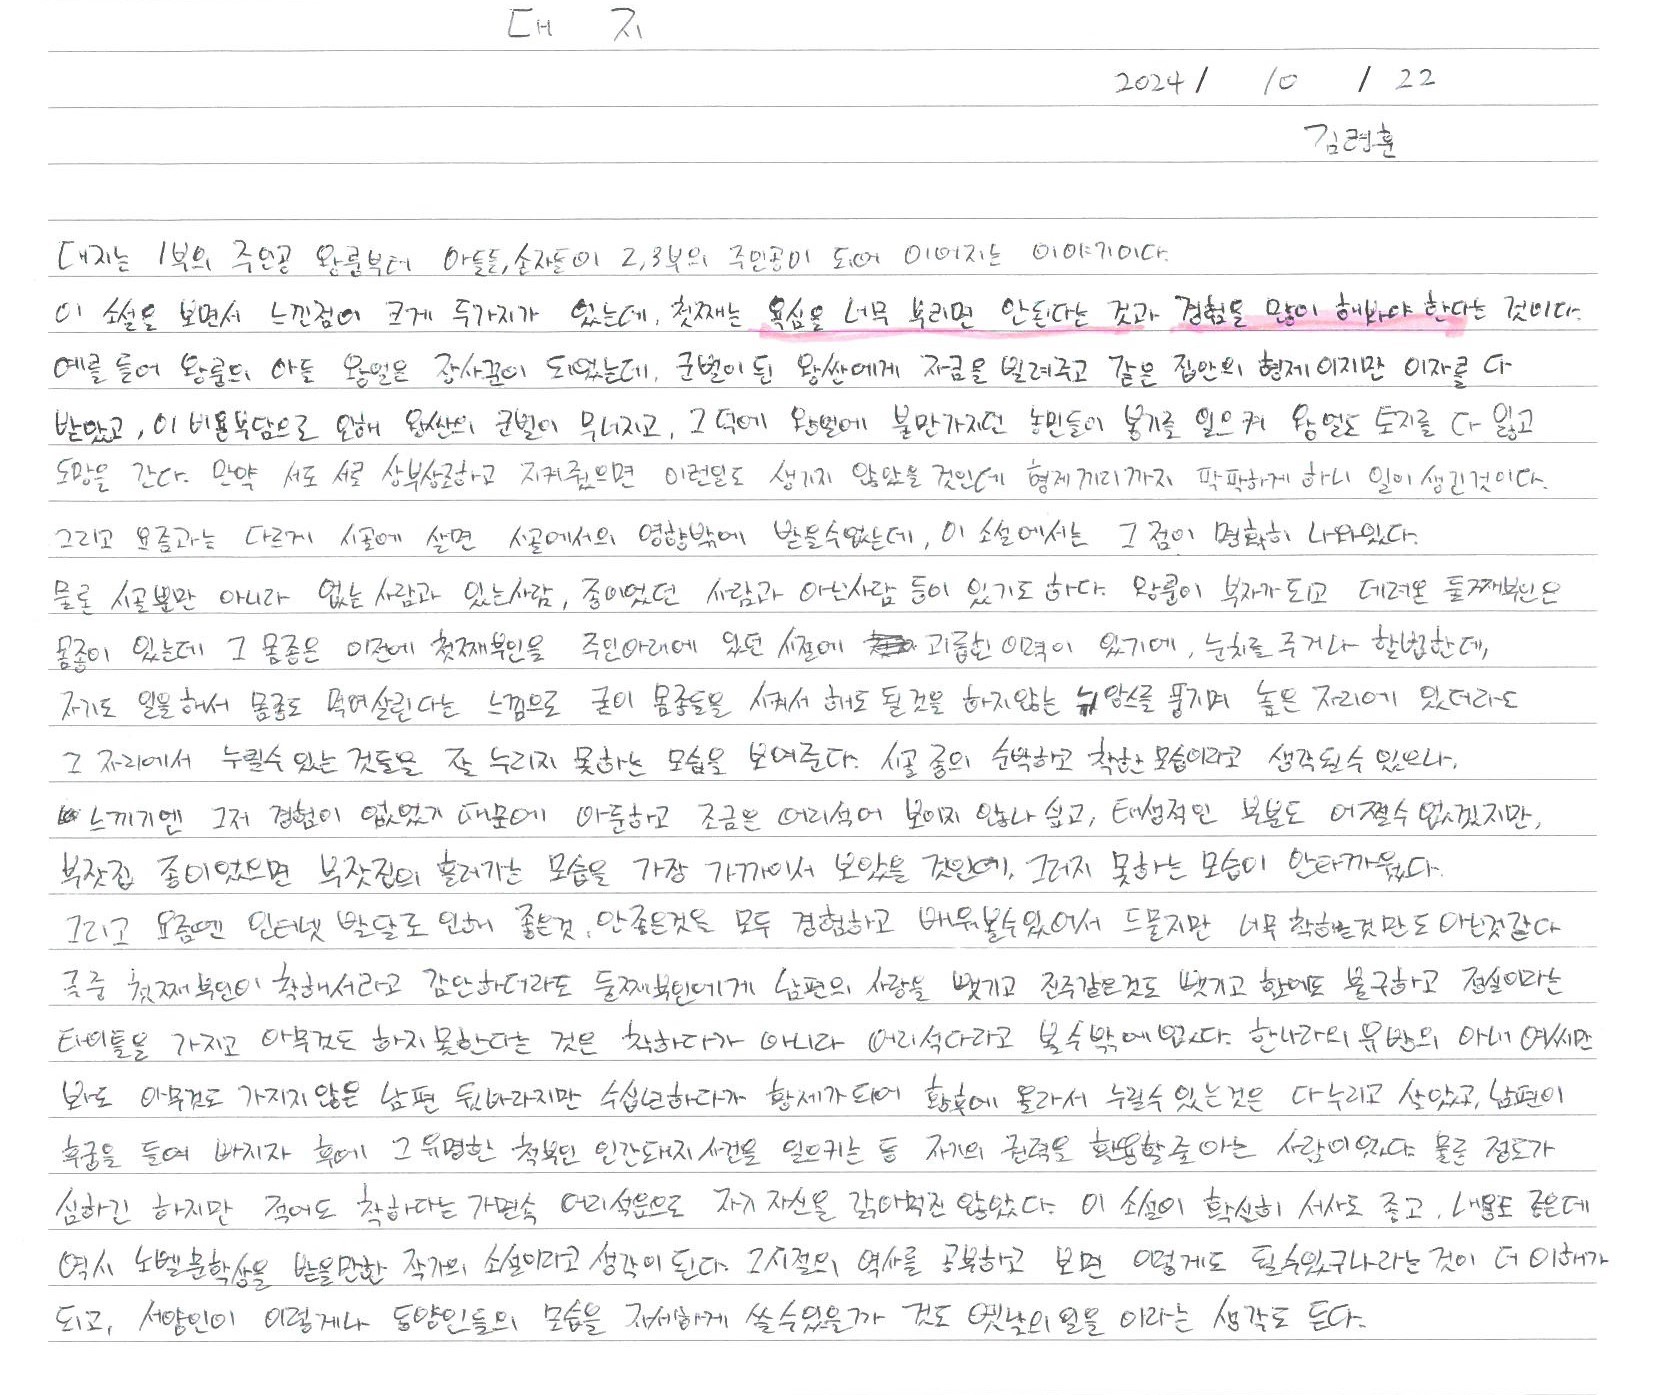 대 지
2024 / 10 / 22
김령훈
대지는 1부의 주인공 왕룽부터 아들들, 손자들이 2, 3부의 주인공이 되어 이어지는 이야기이다.
이 소설을 보면서 느낀점이 크게 두가지가 있는데, 첫째는 욕심을 너무 부리면 안된다는 것과 경험을 많이 해봐야 한다는 것이다.
예를 들어 왕룽의 아들 왕얼은 장사꾼이 되었는데, 군벌이 된 왕싼에게 자금을 빌려주고 같은 집안의 형제 이지만 이자를 다
받았고, 이 비용부담으로 인해 왕싼의 군벌이 무너지고, 그 덕에 왕얼에 불만가지던 농민들이 봉기를 일으켜 왕얼도 토지를 다 잃고
도망을 간다. 만약 서로 서로 상부상조하고 지켜줬으면 이런일도 생기지 않았을 것인데 형제끼리까지 팍팍하게 하니 일이 생긴것이다.
그리고 요즘과는 다르게 시골에 살면 시골에서의 영향밖에 받을수없는데, 이 소설에서는 그 점이 명확히 나와있다.
물론 시골뿐만 아니라 없는 사람과 있는사람, 종이었던 사람과 아닌사람 등이 있기도 하다. 왕룽이 부자가 되고 데려온 둘째부인은
몸종이 있는데 그 몸종은 이전에 첫째부인을 주인아래에 있던 시절에 괴롭힌 이력이 있기에, 눈치를 주거나 할법한데,
자기도 일을해서 몸종도 먹여살린다는 느낌으로 굳이 몸종들을 시켜서 해도 될것을 하지않는 뉘앙스를 풍기며 높은 자리에 있더라도
그 자리에서 누릴수 있는 것들을 잘 누리지 못하는 모습을 보여준다. 시골 종의 순박하고 착한 모습이라고 생각될수 있으나,
느끼기엔 그저 경험이 없었기 때문에 아둔하고 조금은 어리석어 보이지 않나 싶고, 태생적인 부분도 어쩔수 없겠지만,
부잣집 종이었으면 부잣집의 흘러가는 모습을 가장 가까이서 보았을 것인데, 그러지 못하는 모습이 안타까웠다.
그리고 요즘엔 인터넷 발달로 인해 좋은것, 안좋은것을 모두 경험하고 배워볼수있어서 드물지만 너무 착하는것만도 아닌것같다
극중 첫째부인이 착해서라고 감안하더라도 둘째부인에게 남편의 사랑을 뺏기고 진주같은것도 뺏기고 함에도 불구하고 정실이라는
타이틀을 가지고 아무것도 하지못한다는 것은 착하다가 아니라 어리석다라고 볼수밖에없다. 한나라의 유방의 아내 여씨만
봐도 아무것도 가지지않은 남편 뒷바라지만 수십년하다가 황제가되어 황후에 올라서 누릴수 있는것은 다누리고 살았고, 남편이
후궁을 들여 빠지자 후에 그 유명한 척부인 인간돼지 사건을 일으키는 등 자기의 권력을 활용할줄아는 사람이었다. 물론 정도가
심하긴 하지만 적어도 착하다는 가면속 어리석음으로 자기 자신을 갉아먹진 않았다. 이 소설이 확실히 서사도 좋고, 내용도 좋은데
역시 노벨문학상을 받을만한 작가의 소설이라고 생각이 된다. 그시절의 역사를 공부하고 보면 이렇게도 될수있구나라는 것이 더 이해가
되고, 서양인이 이렇게나 동양인들의 모습을 자세하게 쓸수있을까 것도 옛날의 일을 이라는 생각도 든다.